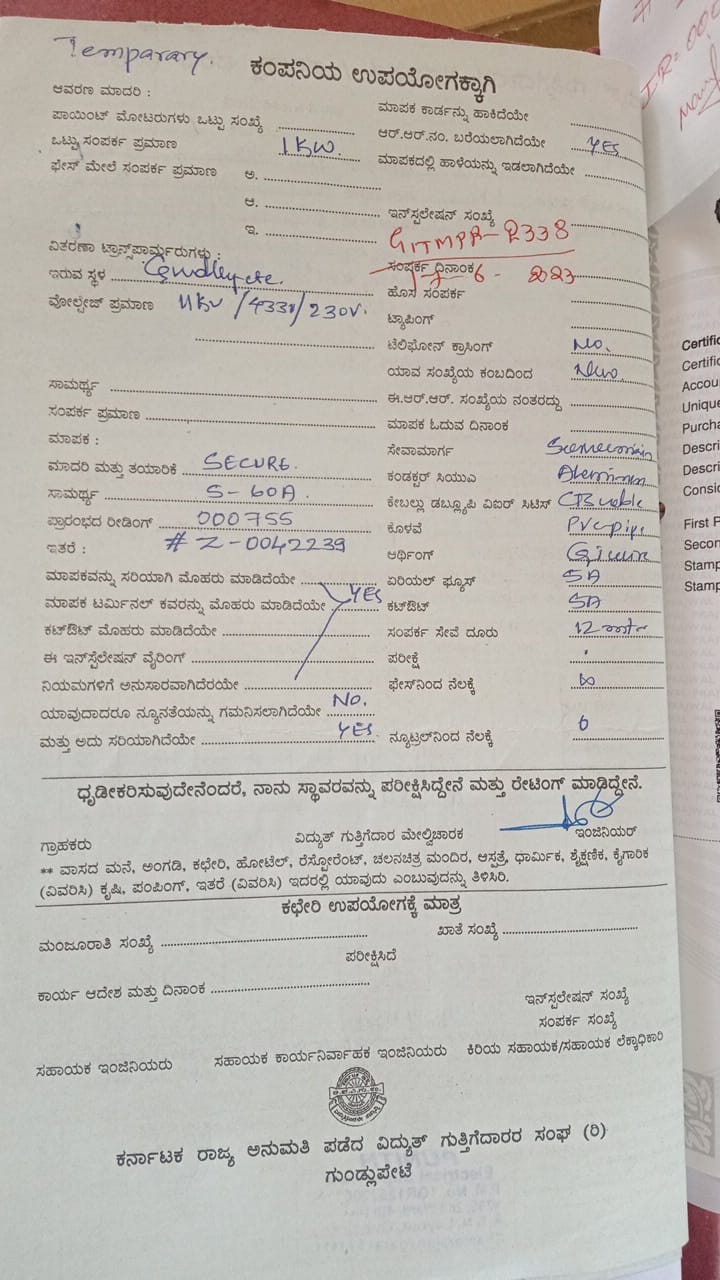 Temparary.
ಕಂಪನಿಯ ಉಪಯೋಗಕ್ಕಾಗಿ
ಆವರಣ ಮಾದರಿ :
ಮಾಪಕ ಕಾರ್ಡನ್ನು ಹಾಕಿದೆಯೇ
ಪಾಯಿಂಟ್ ಮೋಟರುಗಳು ಒಟ್ಟು ಸಂಖ್ಯೆ
ಆರ್.ಆರ್.ನಂ. ಬರೆಯಲಾಗಿದೆಯೇ YES
ಒಟ್ಟು ಸಂಪರ್ಕ ಪ್ರಮಾಣ 1 KW.
ಮಾಪಕದಲ್ಲಿ ಹಾಳೆಯನ್ನು ಇಡಲಾಗಿದೆಯೇ
ಫೇಸ್ ಮೇಲೆ ಸಂಪರ್ಕ ಪ್ರಮಾಣ ಅ.
ಆ.
ಇನ್‌ಸ್ಟಲೇಷನ್ ಸಂಖ್ಯೆ
ಇ.
GTMPR-2338
ವಿತರಣಾ ಟ್ರಾನ್ಸ್‌ಫಾರ್ಮರುಗಳು :
ಸಂಪರ್ಕ ದಿನಾಂಕ 6 - 2023
ಇರುವ ಸ್ಥಳ
ಹೊಸ ಸಂಪರ್ಕ
ವೋಲ್ಟೇಜ್ ಪ್ರಮಾಣ 11KV /433V/230V.
ಟ್ಯಾಪಿಂಗ್
ಟೆಲಿಫೋನ್ ಕ್ರಾಸಿಂಗ್ No.
ಯಾವ ಸಂಖ್ಯೆಯ ಕಂಬದಿಂದ
ಸಾಮರ್ಥ್ಯ
ಈ.ಆರ್.ಆರ್. ಸಂಖ್ಯೆಯ ನಂತರದ್ದು
ಸಂಪರ್ಕ ಪ್ರಮಾಣ
ಮಾಪಕ ಓದುವ ದಿನಾಂಕ
ಮಾಪಕ :
ಸೇವಾಮಾರ್ಗ
ಮಾದರಿ ಮತ್ತು ತಯಾರಿಕೆ SECURE.
ಕಂಡಕ್ಟರ್ ಸಿಯುಎ
ಸಾಮರ್ಥ್ಯ 5-60A.
ಕೇಬಲ್ಲು ಡಬ್ಲ್ಯೂಪಿ ವಿಐರ್ ಸಿಟಿಸ್
ಪ್ರಾರಂಭದ ರೀಡಿಂಗ್ 000755
ಕೊಳವೆ PVC pipe
ಇತರೆ : # Z-0042239
ಆರ್ಥಿಂಗ್
ಮಾಪಕವನ್ನು ಸರಿಯಾಗಿ ಮೊಹರು ಮಾಡಿದೆಯೇ YES
ಏರಿಯಲ್ ಫ್ಯೂಸ್ 5A
ಮಾಪಕ ಟರ್ಮಿನಲ್ ಕವರನ್ನು ಮೊಹರು ಮಾಡಿದೆಯೇ
ಕಟ್‌ಔಟ್ 5A
ಕಟ್‌ಔಟ್ ಮೊಹರು ಮಾಡಿದೆಯೇ
ಸಂಪರ್ಕ ಸೇವೆ ದೂರು
ಈ ಇನ್‌ಸ್ಟೆಲೇಷನ್ ವೈರಿಂಗ್
ಪರೀಕ್ಷೆ
ನಿಯಮಗಳಿಗೆ ಅನುಸಾರವಾಗಿದೆರಯೇ
ಫೇಸ್‌ನಿಂದ ನೆಲಕ್ಕೆ
ಯಾವುದಾದರೂ ನ್ಯೂನತೆಯನ್ನು ಗಮನಿಸಲಾಗಿದೆಯೇ No.
ಮತ್ತು ಅದು ಸರಿಯಾಗಿದೆಯೇ YES
ನ್ಯೂಟ್ರಲ್‌ನಿಂದ ನೆಲಕ್ಕೆ
ಧೃಡೀಕರಿಸುವುದೇನೆಂದರೆ, ನಾನು ಸ್ಥಾವರವನ್ನು ಪರೀಕ್ಷಿಸಿದ್ದೇನೆ ಮತ್ತು ರೇಟಿಂಗ್ ಮಾಡಿದ್ದೇನೆ.
ಗ್ರಾಹಕರು ವಿದ್ಯುತ್ ಗುತ್ತಿಗೆದಾರ ಮೇಲ್ವಿಚಾರಕ ಇಂಜಿನಿಯರ್
** ವಾಸದ ಮನೆ, ಅಂಗಡಿ, ಕಛೇರಿ, ಹೋಟೆಲ್, ರೆಸ್ಟೋರೆಂಟ್, ಚಲನಚಿತ್ರ ಮಂದಿರ, ಆಸ್ಪತ್ರೆ, ಧಾರ್ಮಿಕ, ಶೈಕ್ಷಣಿಕ, ಕೈಗಾರಿಕ
(ವಿವರಿಸಿ) ಕೃಷಿ, ಪಂಪಿಂಗ್, ಇತರೆ (ವಿವರಿಸಿ) ಇದರಲ್ಲಿ ಯಾವುದು ಎಂಬುವುದನ್ನು ತಿಳಿಸಿರಿ.
ಕಛೇರಿ ಉಪಯೋಗಕ್ಕೆ ಮಾತ್ರ
ಮಂಜೂರಾತಿ ಸಂಖ್ಯೆ ಖಾತೆ ಸಂಖ್ಯೆ
ಪರೀಕ್ಷಿಸಿದೆ
ಕಾರ್ಯ ಆದೇಶ ಮತ್ತು ದಿನಾಂಕ
ಇನ್‌ಸ್ಟಲೇಷನ್ ಸಂಖ್ಯೆ
ಸಂಪರ್ಕ ಸಂಖ್ಯೆ
ಸಹಾಯಕ ಇಂಜಿನಿಯರು ಸಹಾಯಕ ಕಾರ್ಯನಿರ್ವಾಹಕ ಇಂಜಿನಿಯರು ಕಿರಿಯ ಸಹಾಯಕ/ಸಹಾಯಕ ಲೆಕ್ಕಾಧಿಕಾರಿ
ಕರ್ನಾಟಕ ರಾಜ್ಯ ಅನುಮತಿ ಪಡೆದ ವಿದ್ಯುತ್ ಗುತ್ತಿಗೆದಾರರ ಸಂಘ (ರಿ)
ಗುಂಡ್ಲುಪೇಟೆ
First P
Secon
Stamp
Stamp